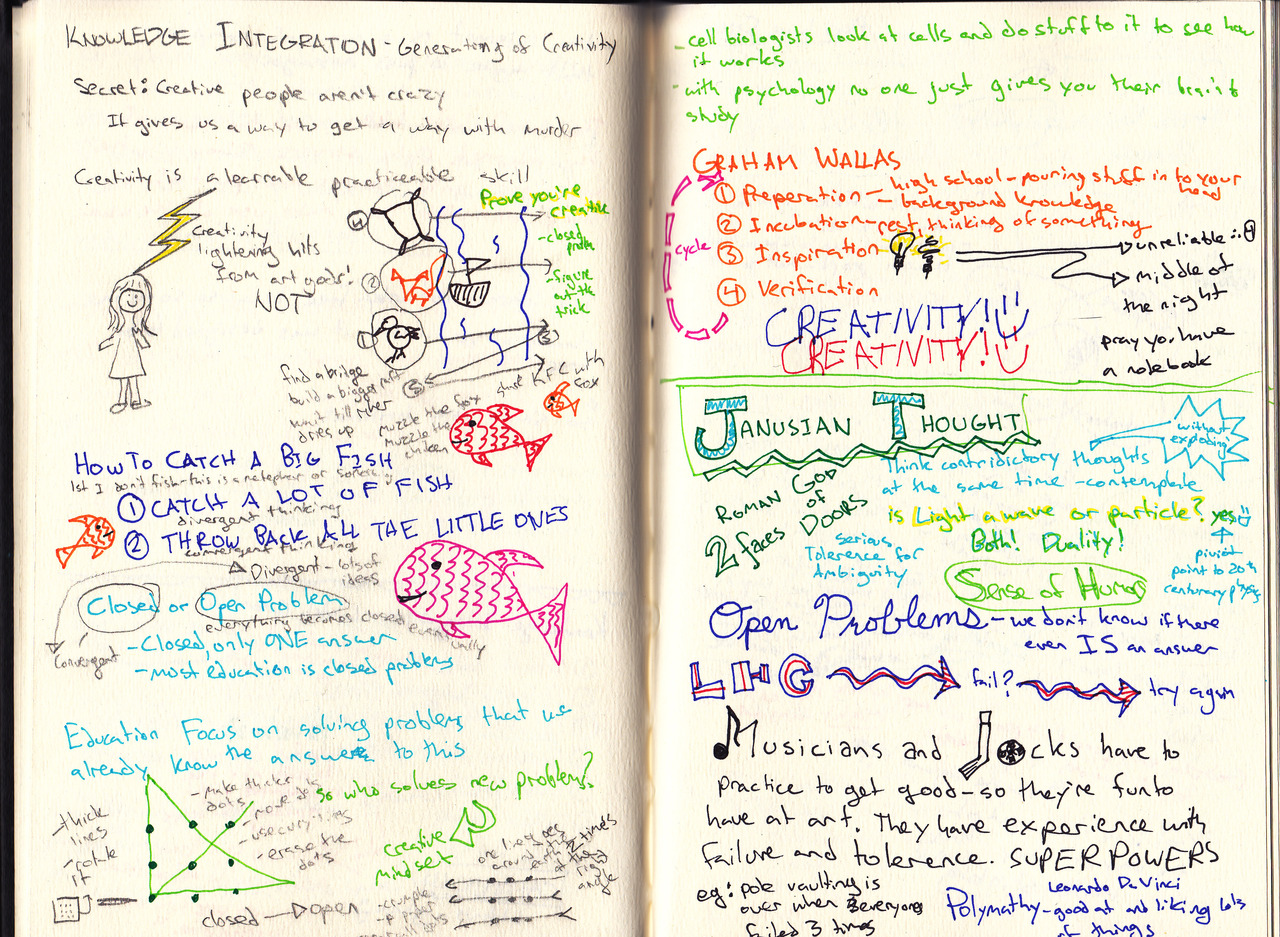 KNOWLEDGE INTEGRATION - Generating of Creativity
Secret: Creative people aren't crazy
It gives us a way to get a way with murder
Creativity is a learnable practiceable skill
Creativity
lightening hits
from art gods!
NOT
Prove you're
creative
- closed
- figure
out the
trick
2
1
3
find a bridge
build a bigger raft
wait till river
dries up
muzzle the fox
muzzle the
chicken
start KFC with
fox
HOW TO CATCH A BIG FISH
1st I don't fish - this is a metaphor or something
① CATCH A LOT OF FISH
divergent thinking
② THROW BACK ALL THE LITTLE ONES
convergent thinking
Divergent - lots of
ideas
Closed or Open Problem
everything becomes closed eventually
Convergent
- Closed, only ONE answer
- most education is closed problems
Education Focus on solving problems that we
already know the answers to this
so who solves new problems?
creative
mindset
- thick
lines
- rotate
it
- make thicker
dots
- move dots
- use curvy lines
- erase the
dots
closed → open
one line goes
around the
earth 2 times
at the
right
angle
- crumple
paper
- cell biologists look at cells and do stuff to it to see how
it works
- with psychology no one just gives you their brain to
study
GRAHAM WALLAS
cycle
① Preperation - high school - pouring stuff in to your
head
- background knowledge
② Incubation - rest, thinking of something
③ Inspiration
④ Verification
unreliable
middle of
the night
pray you have
a notebook
CREATIVITY!
CREATIVITY!
JANUSIAN THOUGHT
without
exploding
Think contridictory thoughts
at the same time - contemplate
ROMAN GOD
of
DOORS
2 faces
is Light a wave or particle? yes
Both! Duality!
serious
Tolerence for
Ambiguity
Sense of Humor
pivitol
point to 20th
centurary physics
Open Problems - we don't know if there
even IS an answer
LHC fail? try again
Musicians and Jocks have to
practice to get good - so they're fun to
have at art. They have experience with
failure and tolerence. SUPERPOWERS
eg: pole vaulting is
over when everyone
failed 3 times
Leonardo Da Vinci
Polymathy - good at and liking lots
of things